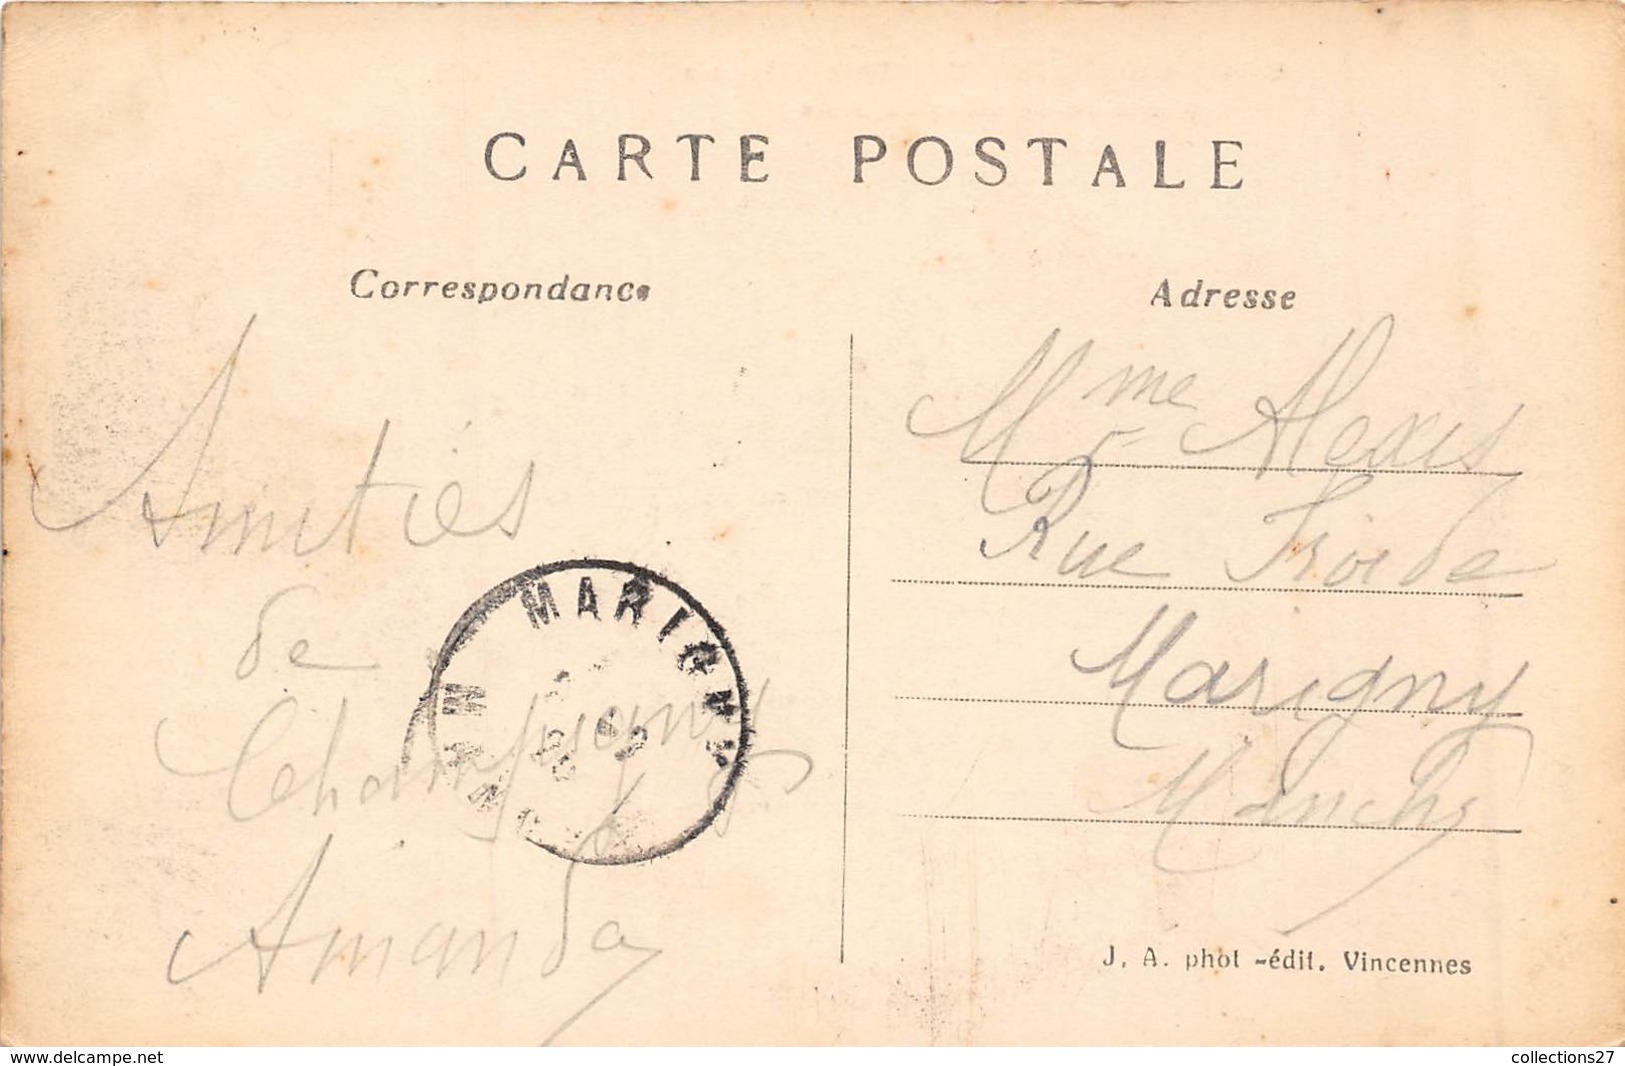 CARTE POSTALE
Correspondance
Amitiés
de
Champigny
Amanda
MARIGNY
Adresse
Mme Alexis
Rue Froide
Marigny
Manche
J. A. phot -édit. Vincennes
www.delcampe.net
collections27